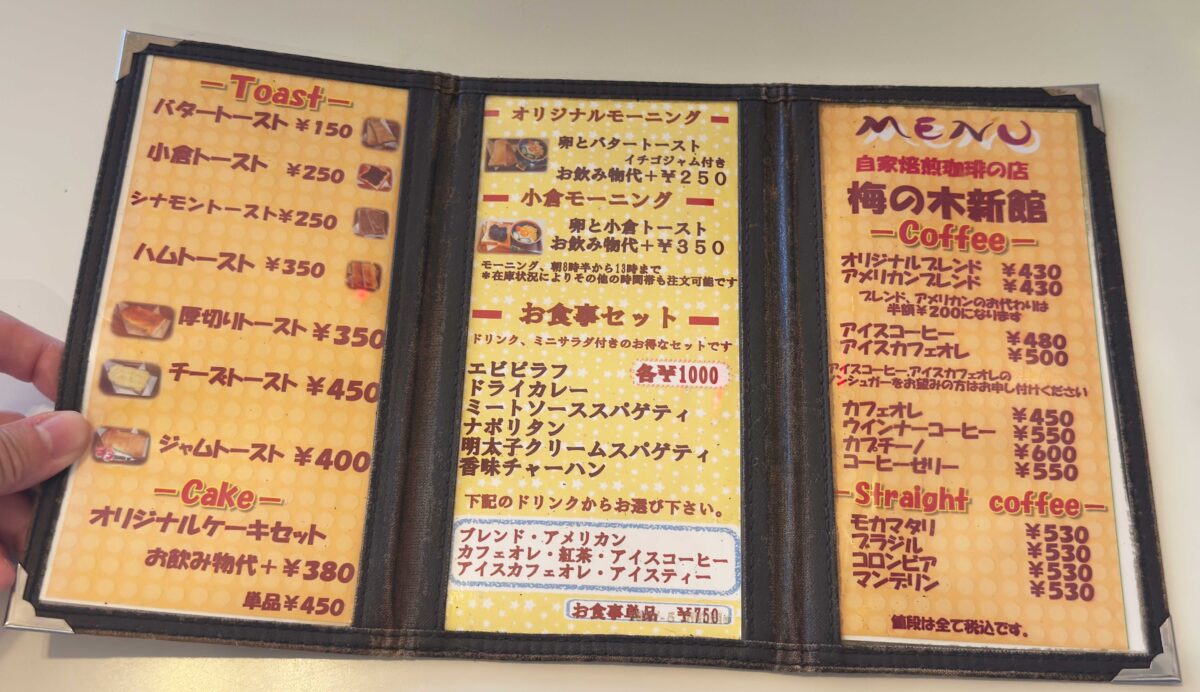 －Toast－
バタートースト ¥150
小倉トースト ¥250
シナモントースト¥250
ハムトースト ¥350
厚切りトースト ¥350
チーズトースト ¥450
ジャムトースト ¥400
－Cake－
オリジナルケーキセット
お飲み物代＋¥380
単品¥450
－ オリジナルモーニング －
卵とバタートースト
イチゴジャム付き
お飲み物代＋¥２５０
－ 小倉モーニング －
卵と小倉トースト
お飲み物代＋¥３５０
モーニング、朝8時半から13時まで
*在庫状況によりその他の時間帯も注文可能です
－ お食事セット －
ドリンク、ミニサラダ付きのお得なセットです
各¥1000
エビピラフ
ドライカレー
ミートソーススパゲティ
ナポリタン
明太子クリームスパゲティ
香味チャーハン
下記のドリンクからお選び下さい。
ブレンド・アメリカン
カフェオレ・紅茶・アイスコーヒー
アイスカフェオレ・アイスティー
お食事単品 ¥750
MENU
自家焙煎珈琲の店
梅の木新館
－Coffee－
オリジナルブレンド ¥430
アメリカンブレンド ¥430
ブレンド、アメリカンのお代わりは
半額¥200になります
アイスコーヒー ¥480
アイスカフェオレ ¥500
アイスコーヒー,アイスカフェオレの
ンシュガーをお望みの方はお申し付けください
カフェオレ ¥450
ウインナーコーヒー ¥550
カプチーノ ¥600
コーヒーゼリー ¥550
－Straight coffee－
モカマタリ ¥530
ブラジル ¥530
コロンビア ¥530
マンデリン ¥530
値段は全て税込です。